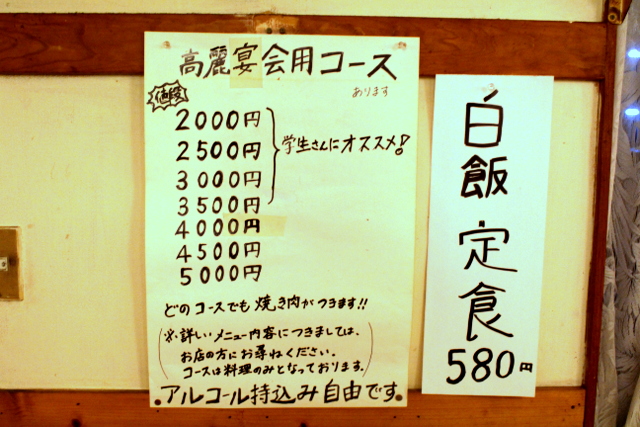 高麗宴会用コース
あります
値段
2000円
2500円
3000円
3500円
学生さんにオススメ!
4000円
4500円
5000円
どのコースでも焼き肉がつきます!!
(※詳しいメニュー内容につきましては、
お店の方にお尋ねください。
コースは料理のみとなっております。)
アルコール持込み自由です
白飯定食
580円